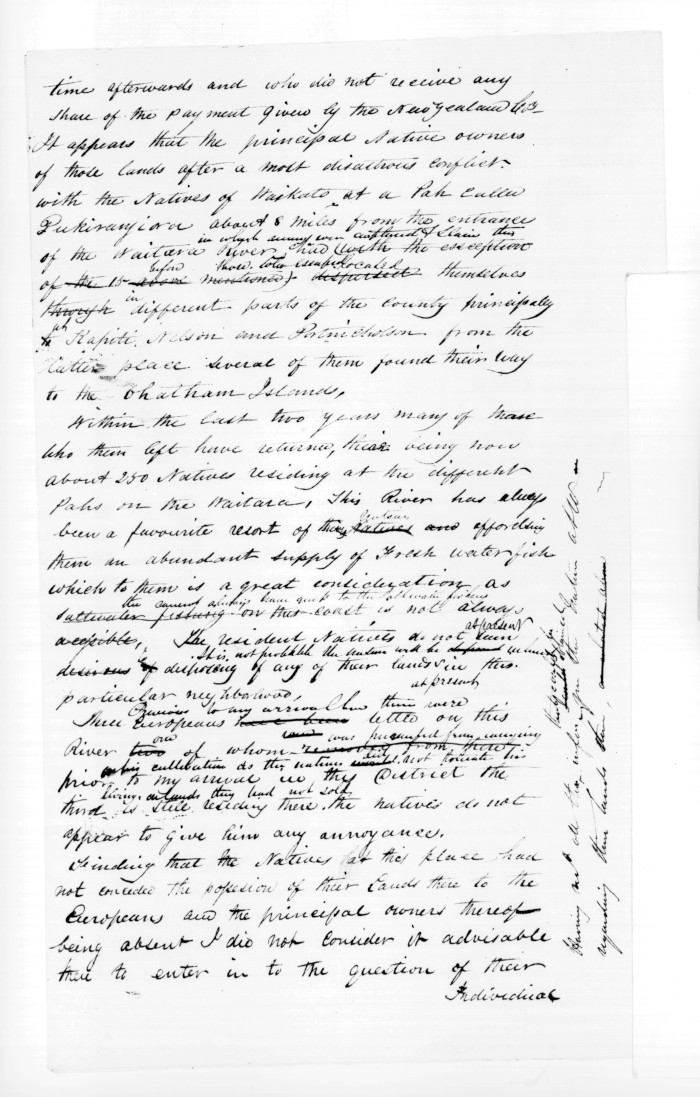 time afterwards and who did not receive any
share of the payment given by the New Zealand Co
It appears that the principal Native owners
of those lands after a most disastrous conflict
with the Natives of Waikato at a Pah called
Pukirangiora about 8 miles from the entrance
in which many were captured & slain this
of the Waitara River, had (with the exception
before those who escaped located
of the 15 above mentioned) dispersed themselves
through in different parts of the County principally
to at Kapiti, Nelson and Portnicholson from the
latter place several of them found their way
to the Chatham Islands,
Within the last two years many of those
who them left have returned, their being now
about 250 Natives residing at the different
Pahs on the Waitara, This River has always
been a favourite resort of the Natives and affording
them an abundant supply of Fresh water fish
which to them is a great consideration, as
saltwater fishing on this coast is not always
at present
accessible, The resident Natives do not seem
It is not probable the natives will be
desirous of disposing of any of their lands in this
particular neighborhood,
at present
Previous to my arrival here there were
Three Europeans have been settled on this
one was prevented from carrying
River two of whom removing from there
on his cultivation as the natives did not
prior to my arrival in this District the
living on lands they had not sold
third is still residing there. The natives do not
appear to give him any annoyance.
Finding that the Natives at this place had
not conceded the possession of their Lands there to the
Europeans and the principal owners thereof
being absent I did not consider it advisable
there to enter in to the question of their
Individual
Having not all the
regarding their lands there,